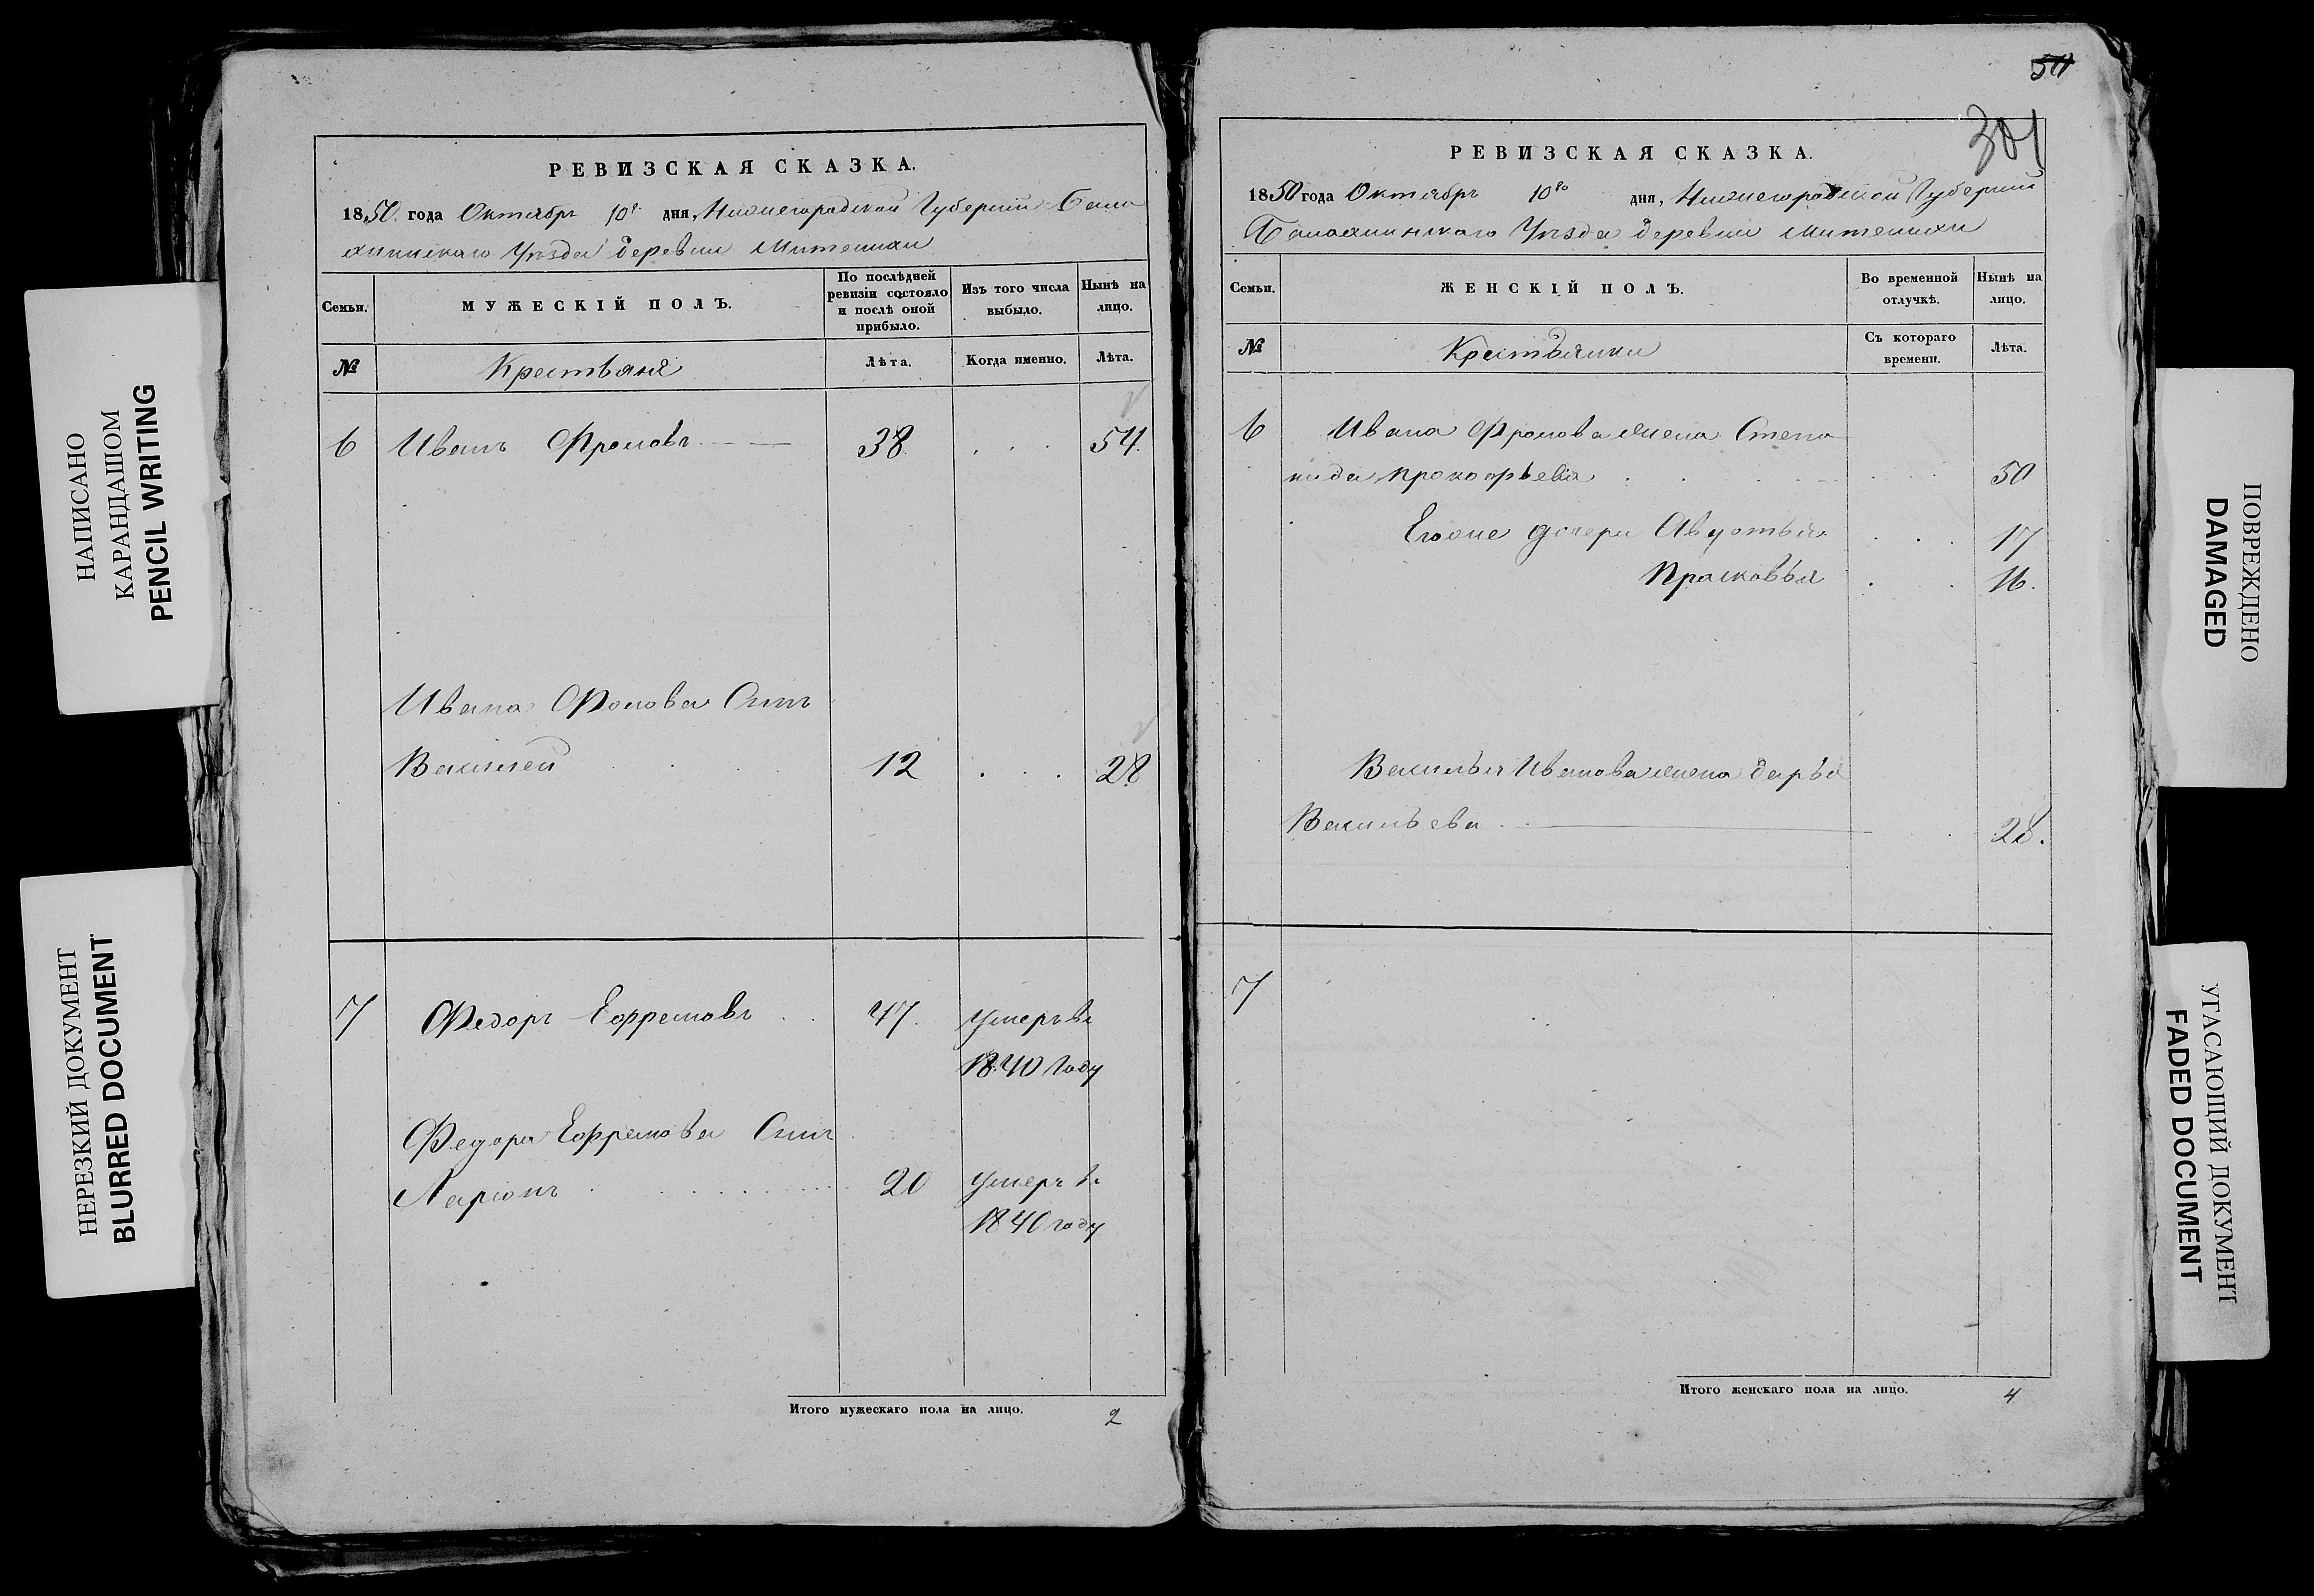 НАПИСАНО
КАРАНДАШОМ
PENCIL WRITING
НЕРЕЗКИЙ ДОКУМЕНТ
BLURRED DOCUMENT
РЕВИЗСКАЯ СКАЗКА.
1850. года Октябрь 10го дня, Нижегородской Губернии Бала
хнинскаго Уѣзда деревни Митенихи
Семьи.
МУЖЕСКІЙ ПОЛЪ.
По послѣдней
ревизіи состояло
и послѣ оной
прибыло.
Изъ того числа
выбыло.
Нынѣ на
лицо.
№ Крестьяня Лѣта. Когда именно. Лѣта.
6 Иванъ Фроловъ 38. 54.
Ивана Фролова Сынъ
Василей 12 28
7 Федоръ Ефремовъ 47. умеръ въ
1840 году
Федора Ефремова Сынъ
Ларионъ 20 умеръ въ
1840 году
Итого мужескаго пола на лицо. 2
301
РЕВИЗСКАЯ СКАЗКА.
1850 года Октябрь 10го дня, Нижегородской Губернии
Балахнинскаго Уѣзда деревни Митенихи
Семьи.
ЖЕНСКІЙ ПОЛЪ.
Во временной
отлучкѣ.
Нынѣ на
лицо.
№ Крестьянки
Съ котораго
времени.
Лѣта.
6 Ивана Фролова жена Степа
нида Прокофьева 50
Егоже дочери Авдотья 17
Прасковья 16.
Василья Иванова жена Дарья
Васильева 28.
7
Итого женскаго пола на лицо. 4
ПОВРЕЖДЕНО
DAMAGED
УГАСАЮЩИЙ ДОКУМЕНТ
FADED DOCUMENT